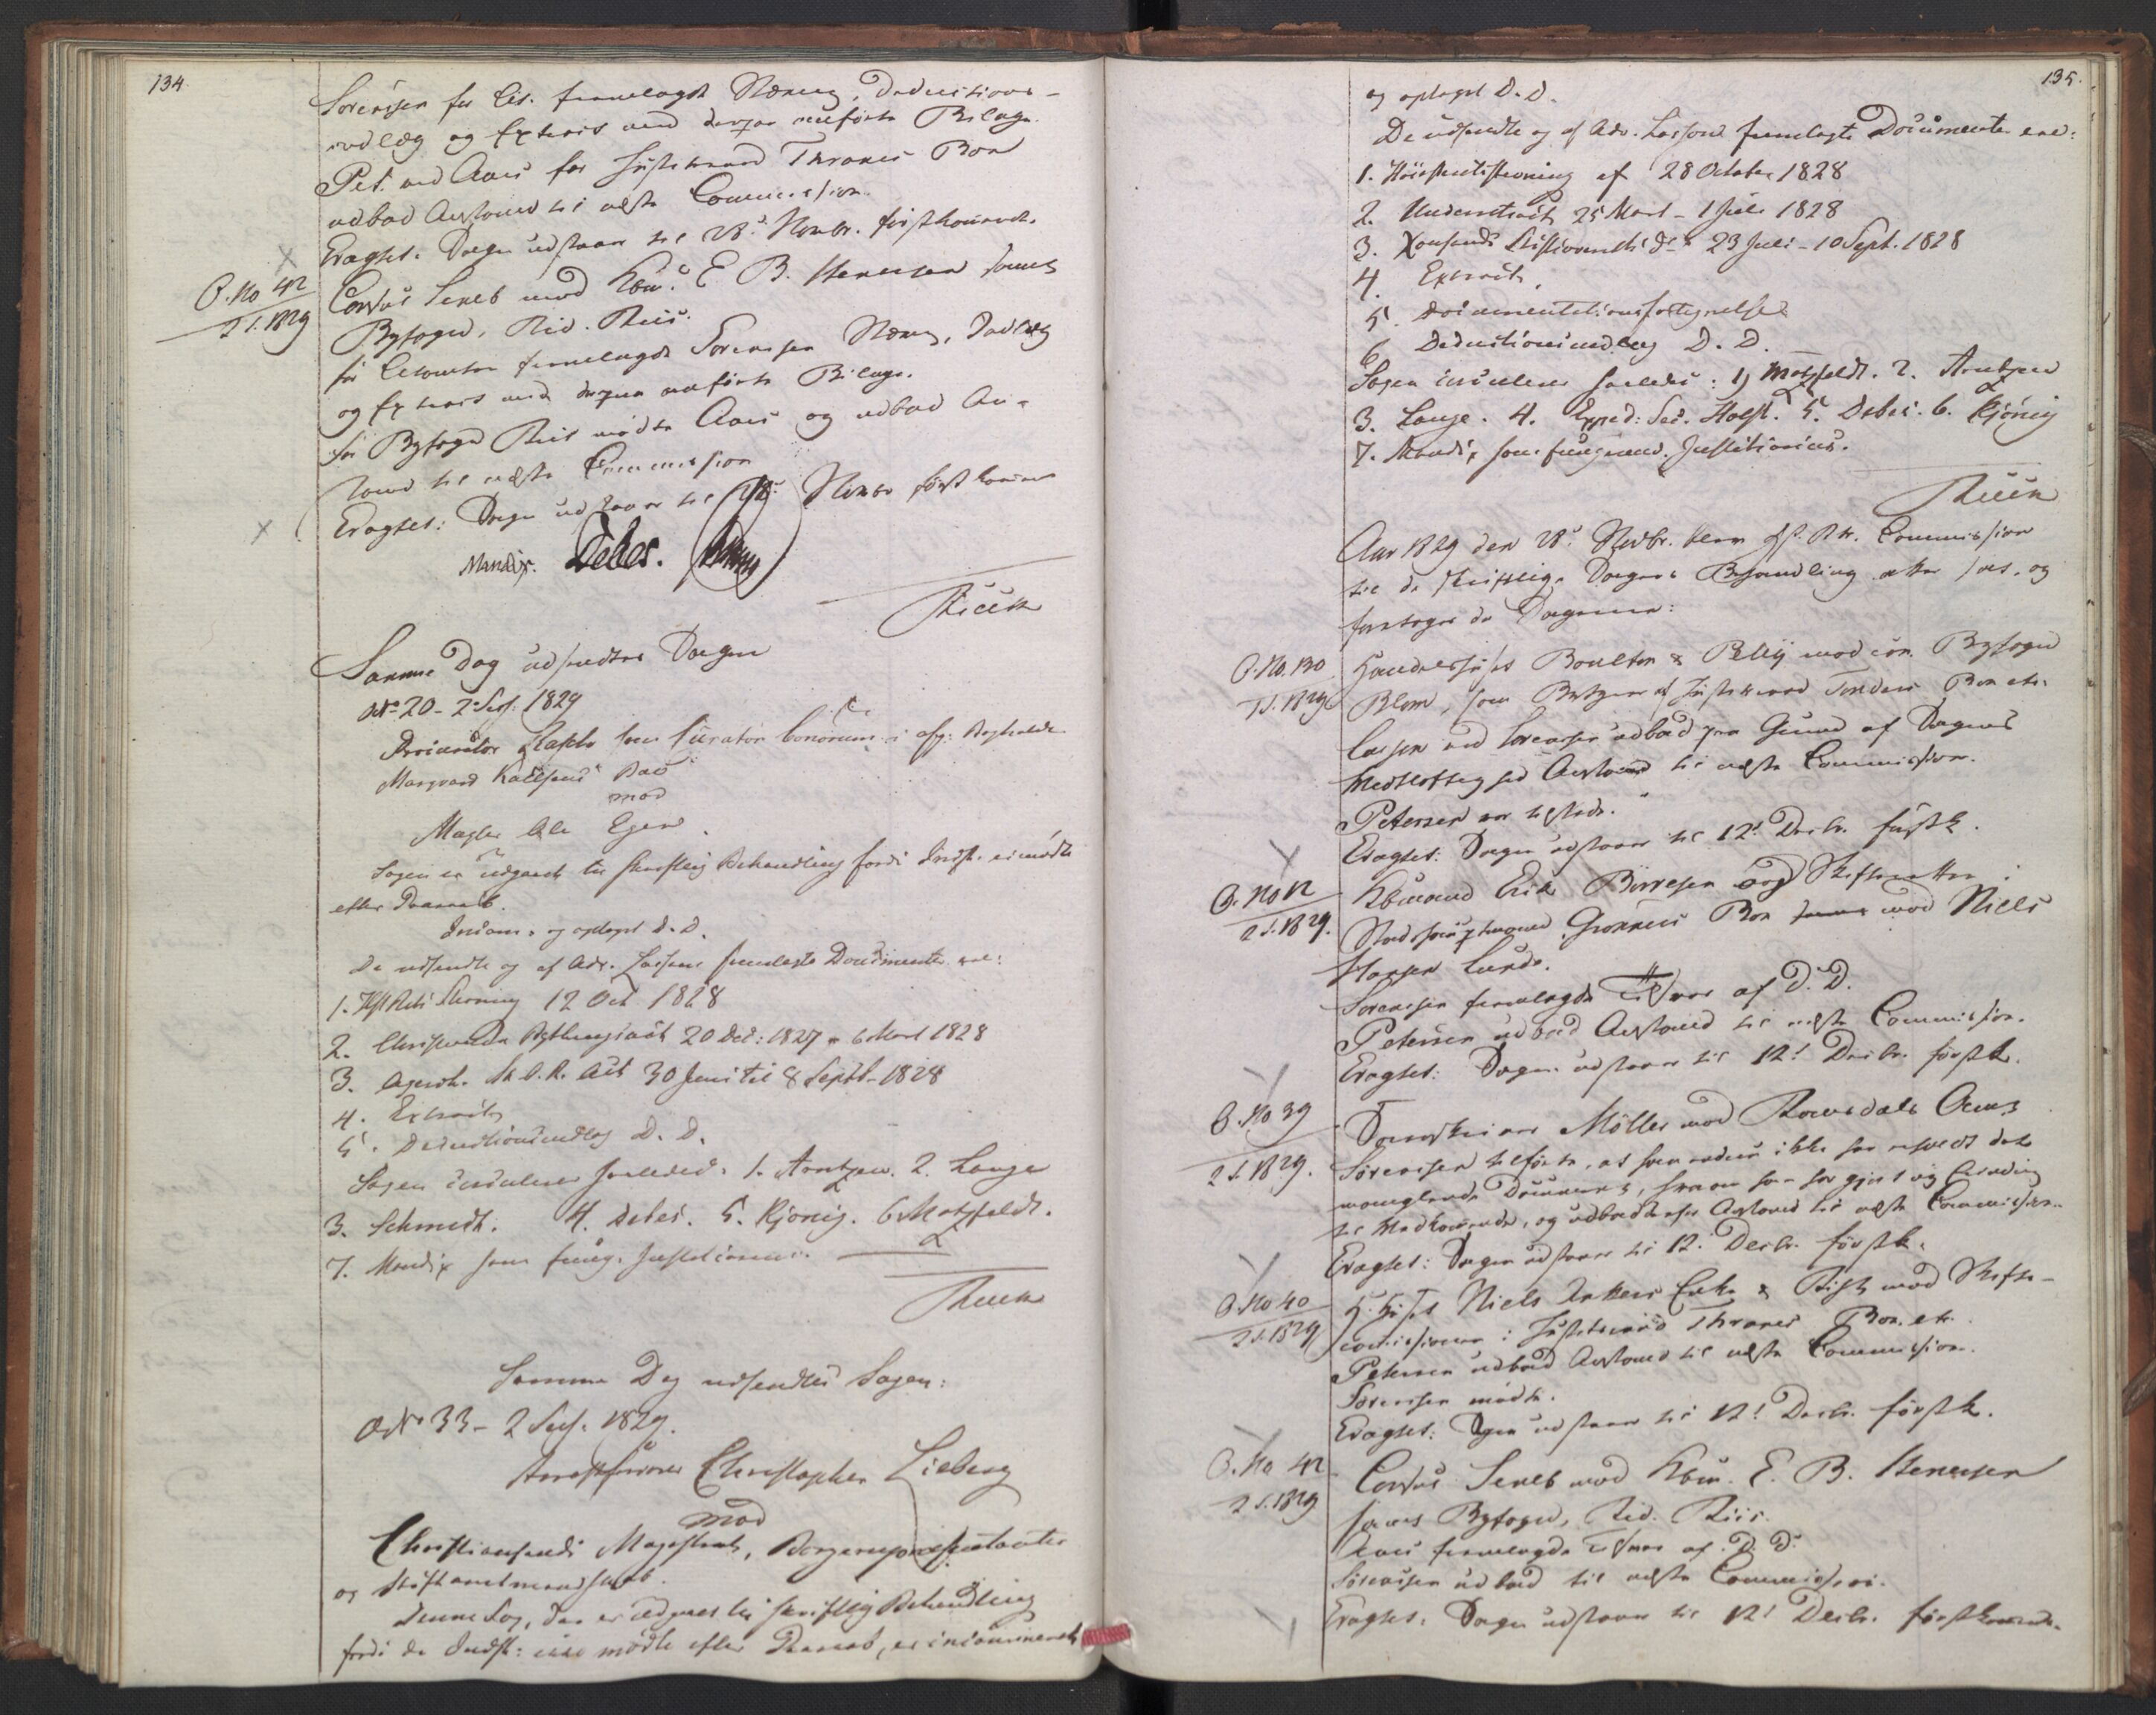 134.
Sorensen for Cit. fremlagde Stævn, Deductions-
indlæg og Extract med deri paa anførte Bilage.
Pet. ved Aars for Justitsraad Thranes Boe
udbad Anstand til næste Commission.
Eragtet: Sagen udstaar til 28de Novbr. førstkommende.
O. No 42
2 S. 1829
Consul Sereb mod Kbm. E. B. Stenersen samt
Byfoged, Rid. Riis.
for Citanten fremlagde Sorensen Stævn, Indlæg
og Extract med derpaa anførte Bilage.
for Byfoged Riis mødte Aars og udbad An-
stand til næste Commission
Eragtet: Sagen udstaar til 28de Novbr førstkomme
Mandix. Debes.
Samme Dag udsendtes Sagen
No 20 - 2 Sess. 1829
Procurator som Curator bonorum i afg.
Marqvard Boe
mod
Mægler Ole Egen.
Sagen er udgaaet til skriftlig Behandling fordi Indst. ei mødte
efter Paaraab.
og optaget D. D.
De udsendte og af Adv. Lassons fremlagte Documenter ere:
1. HøiesteRets Stævning 12 Oct 1828
2. Christiania Bythingsact 20 Dec: 1827 - 6 Mart 1828
3. Agersh. St. O. R. Act 30 Juni til 8 Septb. 1828
4. Extract
5. Deductionsindlæg D. D.
Sagen circulerer saaledes: 1. Arntzen. 2. Lange
3. Schmidt. 4. Debes. 5. Kjønig. 6. Motzfeldt.
7. Mandix som fung. Justitiarius.
Samme Dag udsendtes Sagen:
No 33 - 2 Sess. 1829.
Christopher Lieberg
mod
Christiansands Magistrat, Borgerrepræsentanter
og Stiftamtmandskab.
Denne Sag, der er udgaaet til skriftlig Behandling
fordi de Indst: ikke mødte efter Paaraab, er incamineret
135.
og optaget D. D.
De udsendte og af Adv. Lassons fremlagte Documenter ere:
1. Høiesteretsstevning af 28 October 1828
2. Underretsact 25 Mart - 1 Juli 1828
3. Xansands Stiftsoverrets do 23 Juli - 10 Sept. 1828
4. Extract.
5. Documentationsfortegnelse
6. Deductionsindlæg D. D.
Sagen circulerer saaledes: 1) Motzfeldt. 2. Arntzen
3. Lange. 4. Exped: Sec. Holst. 5. Debes. 6. Kjønig
7. Mandix som fungerend. Justitiarius.
Aar 1829 den 28de Novbr. blev Hst. Rts. Commission
til de skriftlige Sagers Behandling atter sat, og
foretoges da Sagerne:
O. No. 130
1 S. 1829
Handelshuset Boulton & Pelly mod con. Byfoged
Blom, som Bestyrer af Justitsraad Tordens Boe etc.
Lasson ved Sorensen udbad paa Grund af Sagens
Vidtløftighed Anstand til næste Commission.
Petersen var tilstede.
Eragtet: Sagen udstaar til 12te Decbr. førstk.
O. No 12
2 S. 1829.
Kbmand Erik Børresen mod Skifteretten i
Stadshauptmand Grønnens Boe samt mod Niels
Hansen Lunde.
Sorensen fremlagde Tilsvar af D. D.
Petersen udbad Anstand til næste Commission.
Eragtet: Sagen udstaar til 12te Decbr. førstk.
O. No 39
2 S. 1829.
Sorenskriver Møller mod Romsdals Amt
Sørensen tilførte, at han endnu ikke har erholdt det
manglende Document, hvorom han har gjort ny Erindring
til Vedkommende, og udbad derfor Anstand til næste Commission.
Eragtet: Sagen udstaar til 12te Decbr. førstk.
O. No 40
2 S. 1829
H. Huset Niels Ankers Enke & mod Skifte-
commissionen i Justitsraad Thranes Boe. etc.
Petersen udbad Anstand til næste Commission.
Sørensen mødte.
Eragtet: Sagen udstaar til 12te Decbr. førstk.
O. No 42
2 S. 1829
Consul Sereb mod Kbm. E. B. Stenersen
samt Byfoged, Rid. Riis.
Aars fremlagde Tilsvar af D. D.
Sørensen udbad til næste Commission.
Eragtet: Sagen udstaar til 12te Decbr. førstkomende.